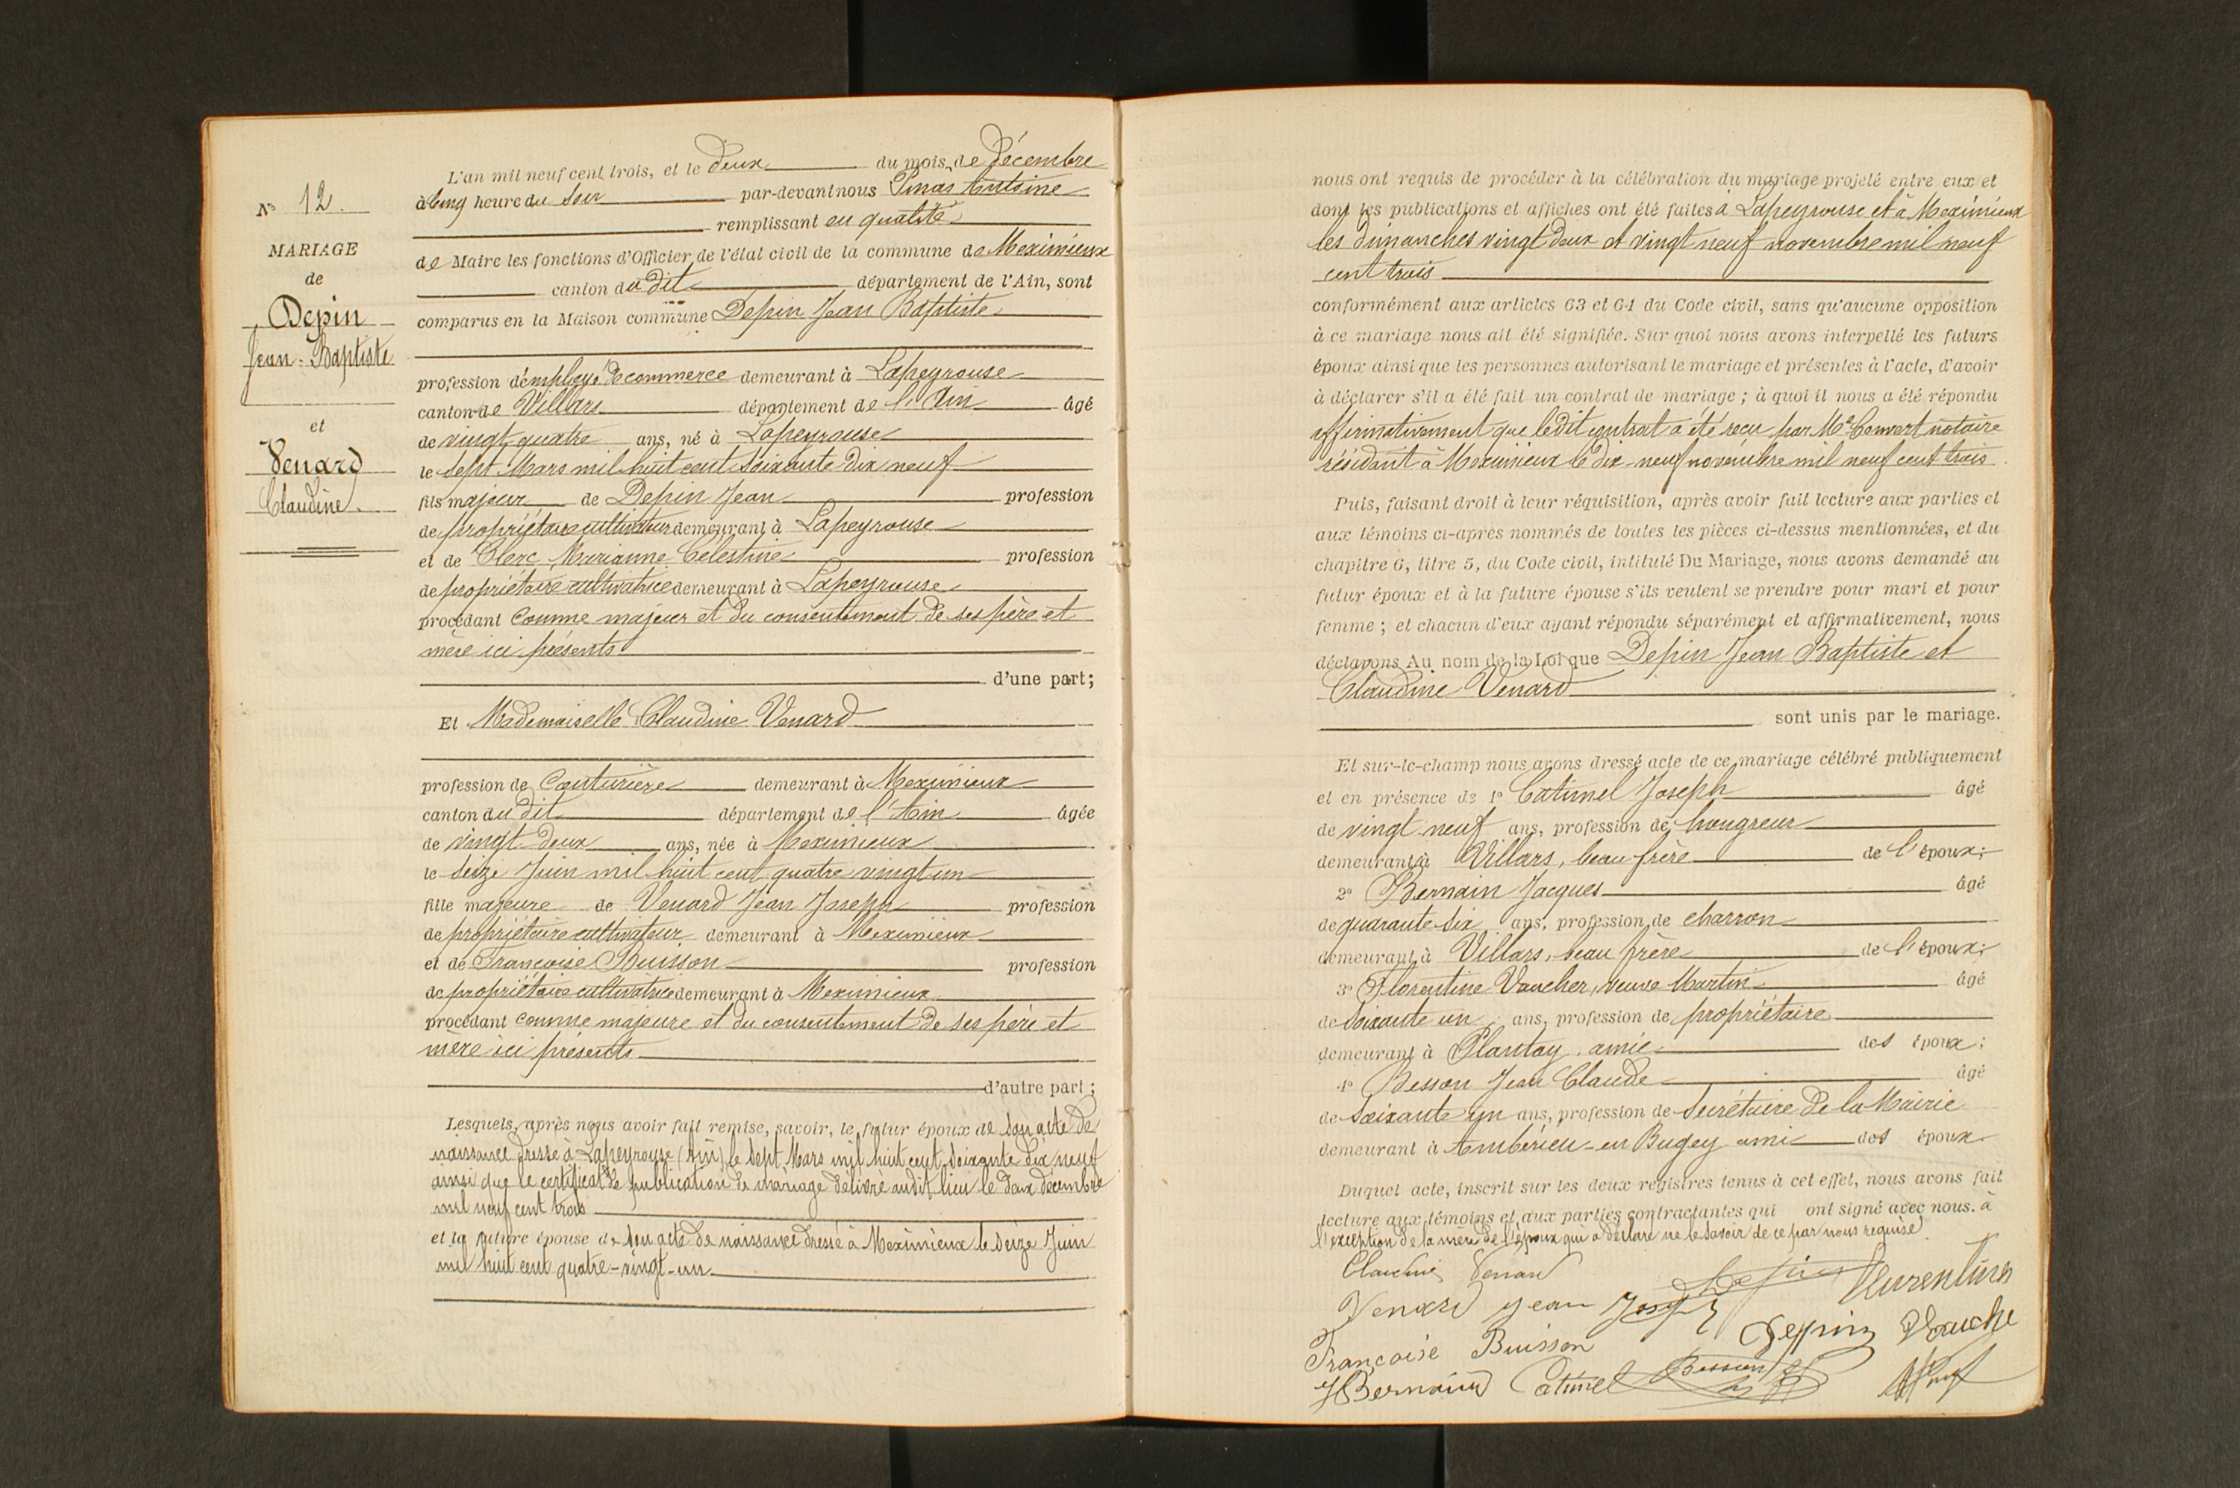 N° 12.
MARIAGE
de
Depin
Jean-Baptiste
et
Venard
Claudine.
L'an mil neuf cent trois, et le deux du mois de décembre
à Cinq heure du Soir par-devant nous Antoine
remplissant en qualité
de Maire les fonctions d'Officier de l'état civil de la commune de Meximieux
canton du dit département de l'Ain, sont
comparus en la Maison commune Depin Jean Baptiste
profession d'employé de commerce demeurant à Lapeyrouse
canton de Villars département de l'Ain âgé
de vingt quatre ans, né à Lapeyrouse
le Sept Mars mil huit cent soixante dix neuf
fils majeur de Depin Jean profession
de propriétaire cultivateur demeurant à Lapeyrouse
et de Clerc Marianne Célestine profession
de propriétaire cultivatrice demeurant à Lapeyrouse
procédant comme majeur et du consentement de ses père et
mère ici présents
d'une part;
Et Mademoiselle Claudine Venard
profession de Couturière demeurant à Meximieux
canton du dit département de l'Ain âgée
de vingt deux ans, née à Meximieux
le Seize Juin mil huit cent quatre vingt un
fille majeure de Venard Jean Joseph profession
de propriétaire cultivateur demeurant à Meximieux
et de Françoise Buisson profession
de propriétaire cultivatrice demeurant à Meximieux
procédant comme majeure et du consentement de ses père et
mère ici présents
d'autre part;
Lesquels, après nous avoir fait remise, savoir, le futur époux de son acte de
naissance dressé à Lapeyrouse (Ain) le Sept Mars mil huit cent soixante dix neuf
ainsi que le certificat de publication de mariage délivré audit lieu le deux décembre
mil neuf cent trois
et la future épouse de son acte de naissance dressé à Meximieux le seize Juin
mil huit cent quatre-vingt-un
nous ont requis de procéder à la célébration du mariage projeté entre eux et
dont les publications et affiches ont été faites à Lapeyrouse et à Meximieux
les dimanches vingt deux et vingt neuf novembre mil neuf
cent trois
conformément aux articles 63 et 64 du Code civil, sans qu'aucune opposition
à ce mariage nous ait été signifiée. Sur quoi nous avons interpellé les futurs
époux ainsi que les personnes autorisant le mariage et présentes à l'acte, d'avoir
à déclarer s'il a été fait un contrat de mariage; à quoi il nous a été répondu
affirmativement que ledit contrat a été reçu par Me Convert notaire
résidant à Meximieux le dix-neuf novembre mil neuf cent trois.
Puis, faisant droit à leur réquisition, après avoir fait lecture aux parties et
aux témoins ci-après nommés de toutes les pièces ci-dessus mentionnées, et du
chapitre 6, titre 5, du Code civil, intitulé Du Mariage, nous avons demandé au
futur époux et à la future épouse s'ils veulent se prendre pour mari et pour
femme; et chacun d'eux ayant répondu séparément et affirmativement, nous
déclarons Au nom de la Loi que Depin Jean Baptiste et
Claudine Venard
sont unis par le mariage.
Et sur-le-champ nous avons dressé acte de ce mariage célébré publiquement
et en présence de 1° Catimel Joseph âgé
de vingt neuf ans, profession de hongreur
demeurant à Villars, beau frère de l'époux;
2° Bernain Jacques âgé
de quarante six ans, profession de charron
demeurant à Villars, beau frère de l'époux;
3° Florentine Vaucher, veuve Martin âgé
de soixante un ans, profession de propriétaire
demeurant à Plantay, amie des époux;
4° Besson Jean Claude âgé
de Soixante un ans, profession de Secrétaire de la Mairie
demeurant à Ambérieu-en Bugey ami des époux
Duquel acte, inscrit sur les deux registres tenus à cet effet, nous avons fait
lecture aux témoins et aux parties contractantes qui ont signé avec nous. à
l'exception de la mère de l'époux qui a déclaré ne le savoir de ce par nous requise.
Claudine Venard
Depin
Venard Jean Joseph
Depin Vauche
Françoise Buisson
JBernain Catimel Besson